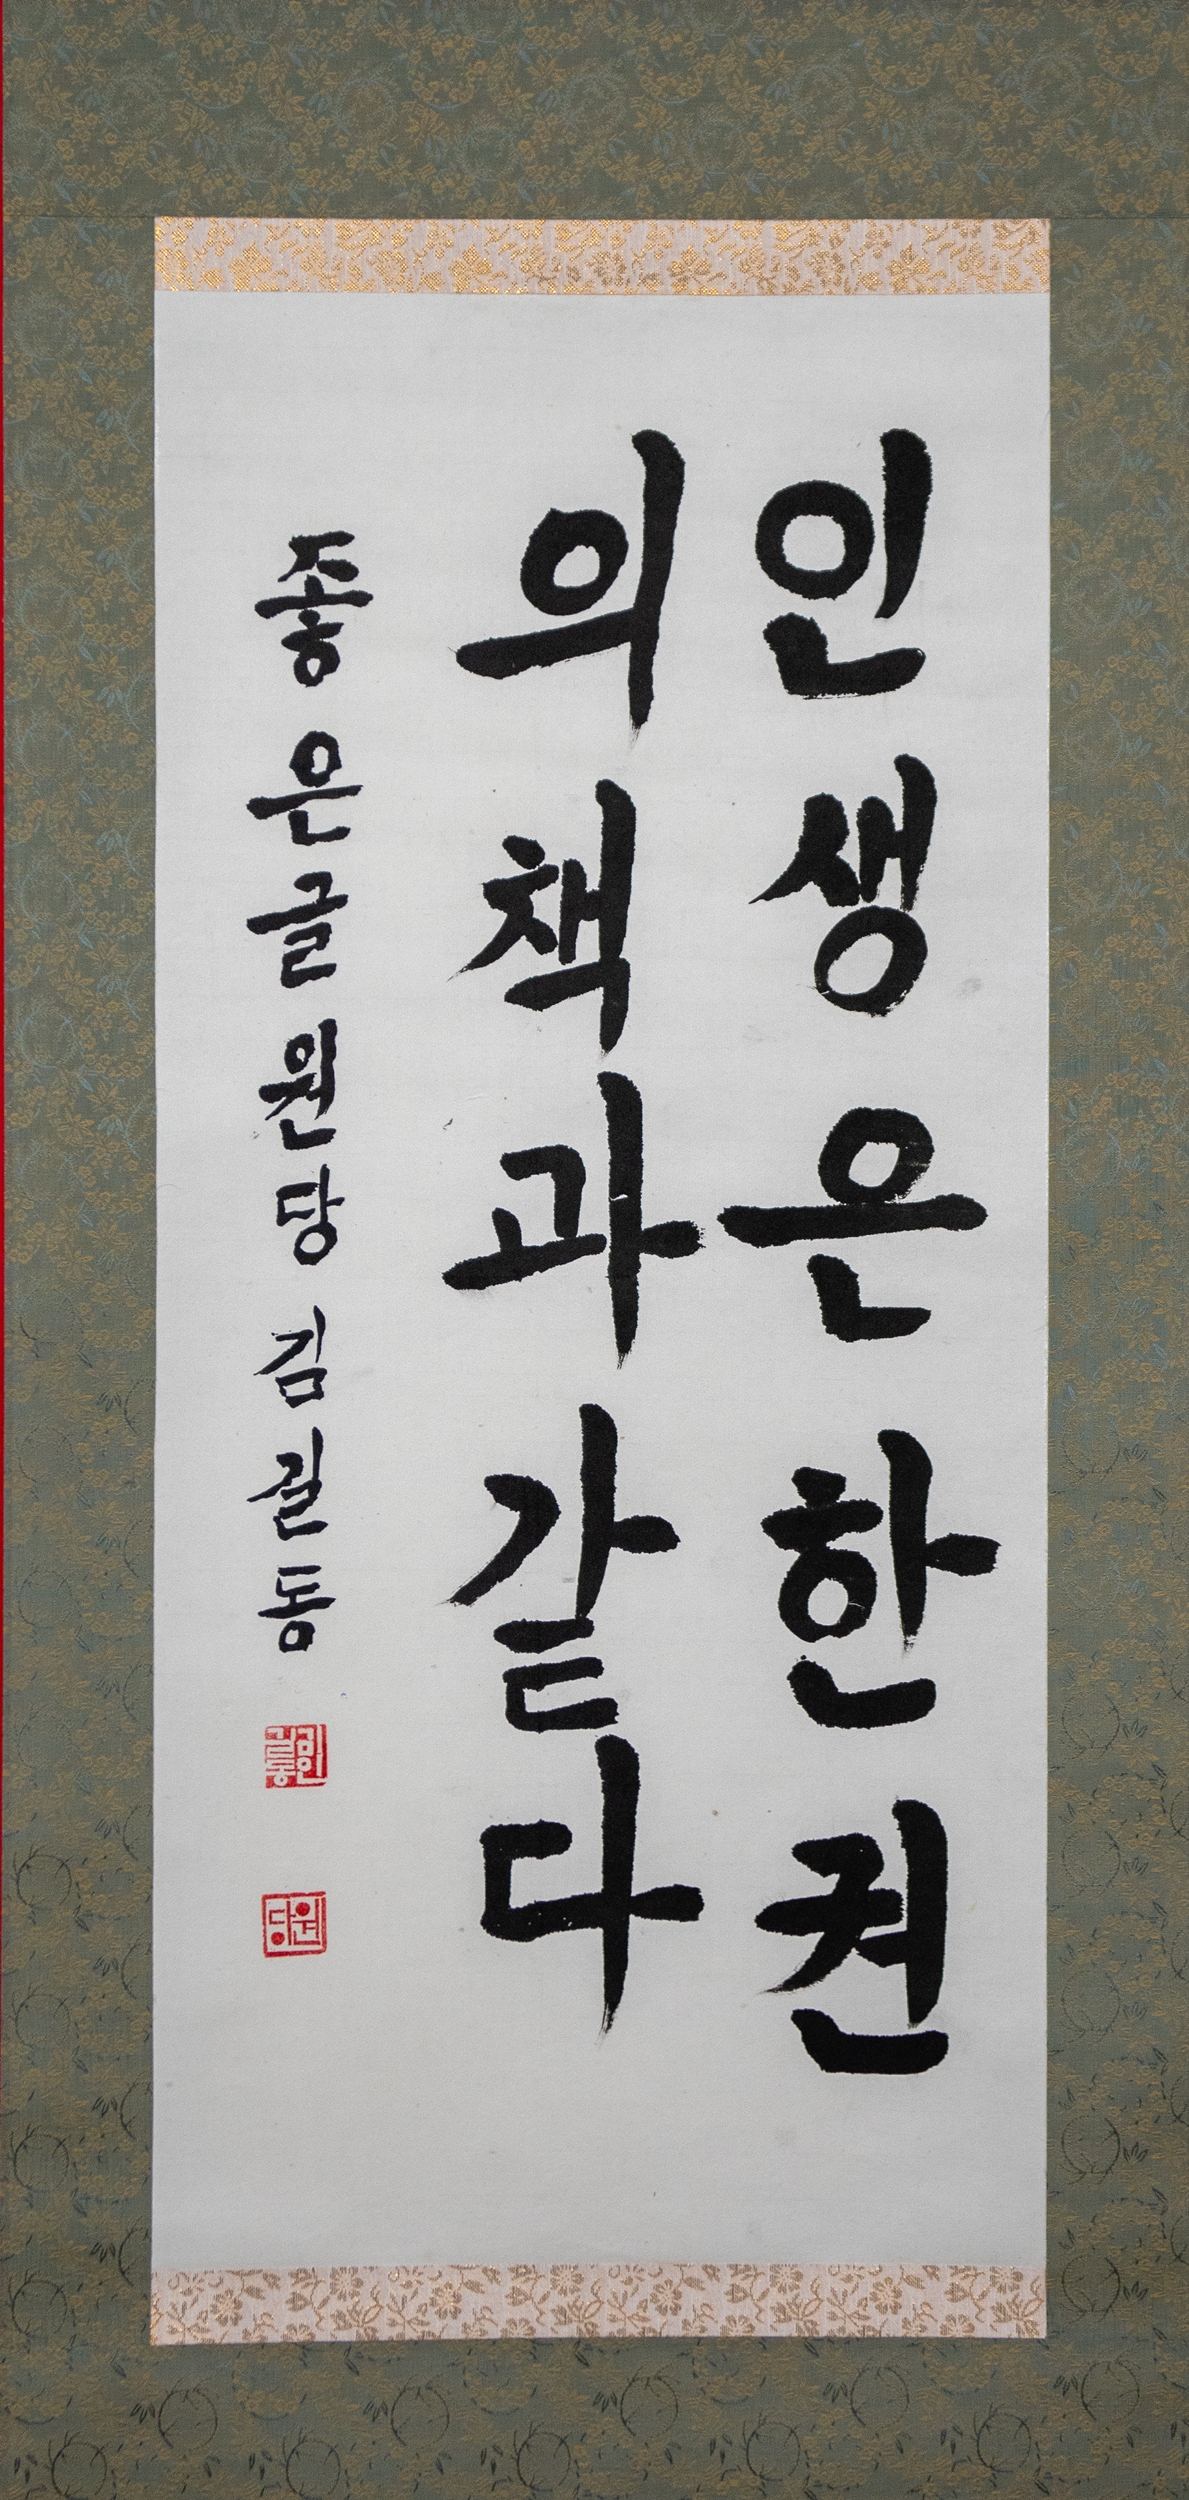 인생은한권
의책과같다
좋은글원당김길동
김인길동
원당